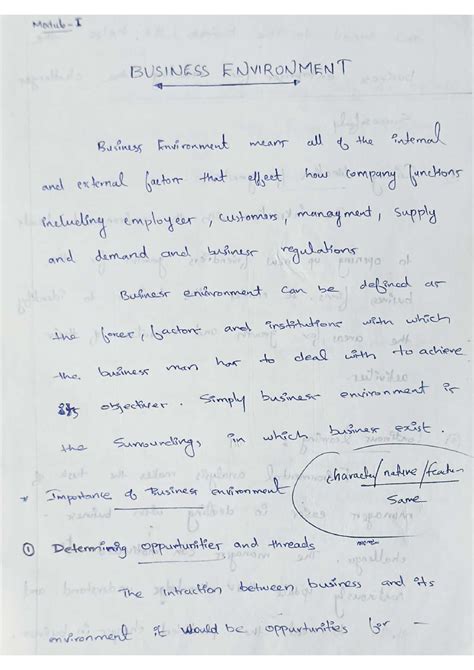 BUSINESS ENVIRONMENT
Business Environment means all of the internal
and external factors that effect how company functions
including employees, customers, managment, supply
and demand and business regulations
Business environment can be defined as
the forces, factors and institutions with which
the business man has to deal with to achieve
its objectives. Simply business environment is
the surroundings, in which business exist.
* Importance of Business environment
character/nature/featers
Same
① Determining oppurtunities and threads
The intraction between business and its
environment it would be oppurtunities for -